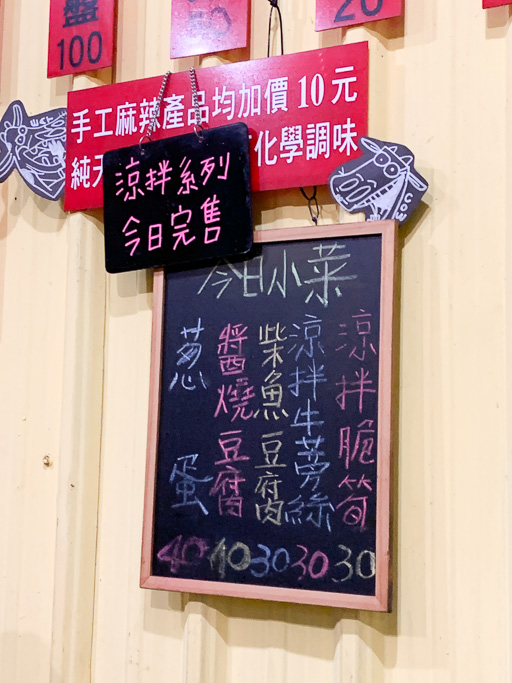 盤
100
20
手工麻辣產品均加價10元
純天 化學調味
涼拌系列
今日完售
今日小菜
涼拌脆筍 30
涼拌牛蒡絲 30
柴魚豆腐 30
醬燒豆腐 40
葱蛋 40